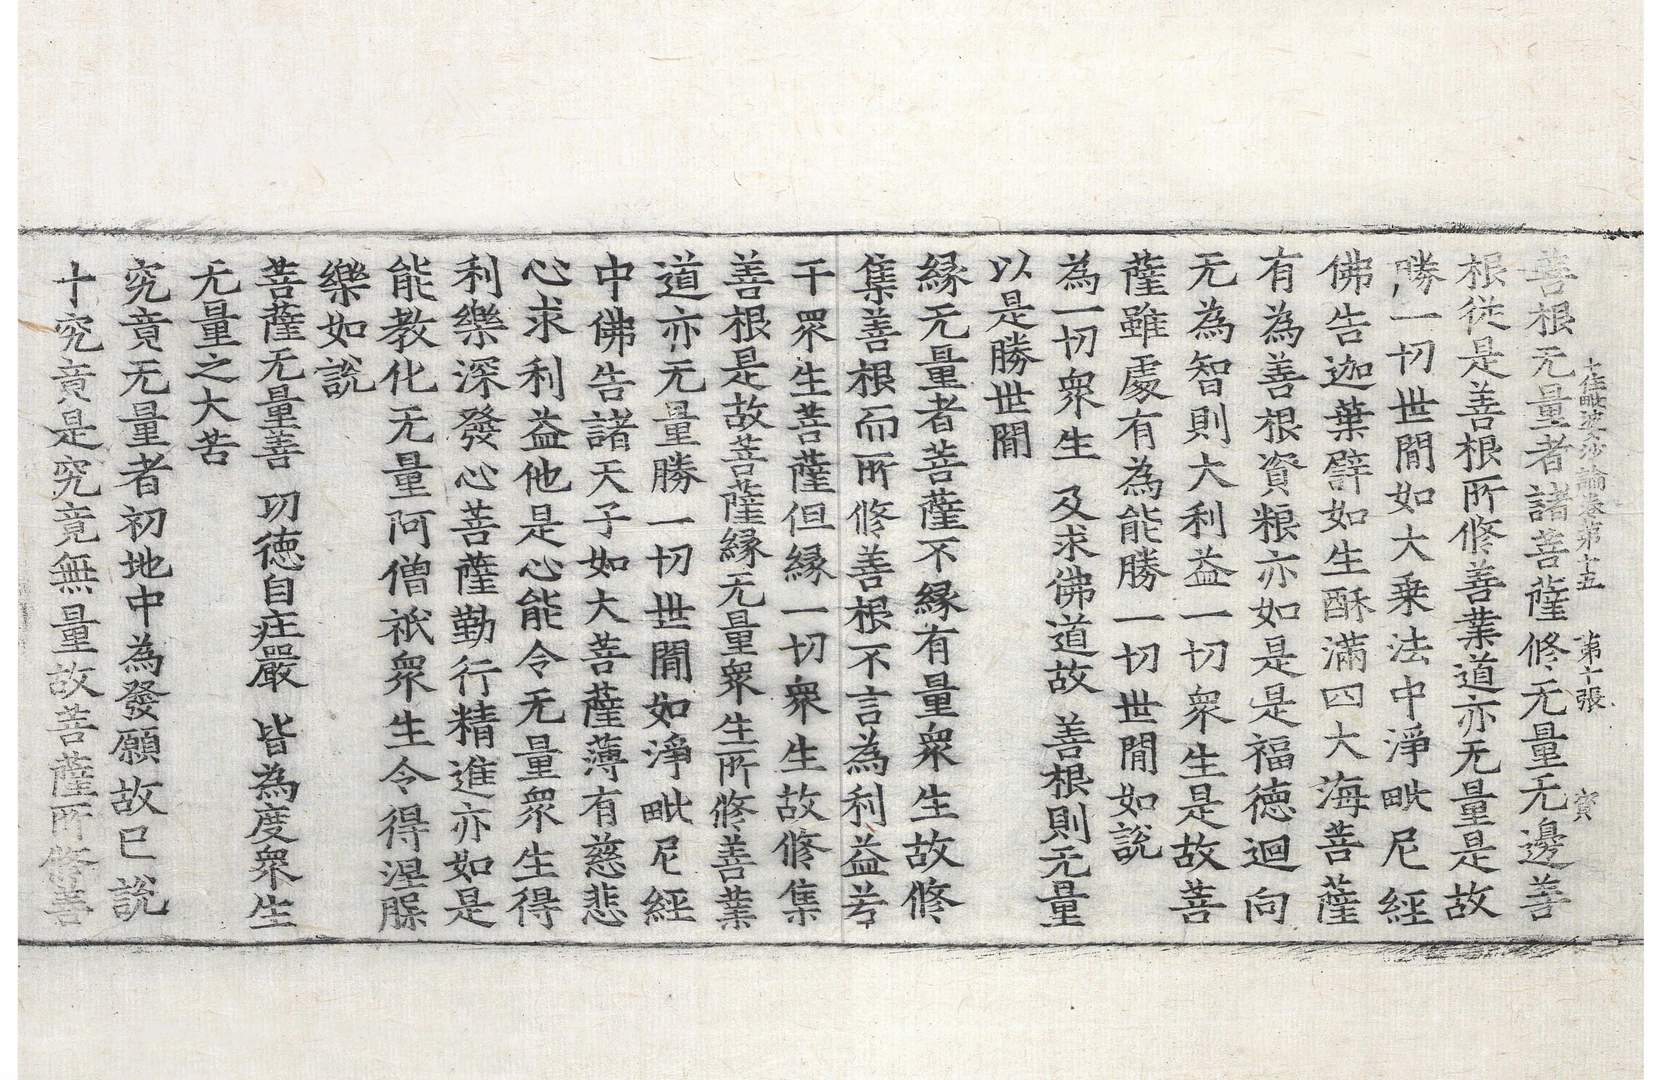 十住毗婆沙論卷第十五　第十張　寳
善根无量者諸菩薩修无量无邊善
根從是善根所修善業道亦无量是故
勝一切世閒如大乗法中淨毗尼經
佛告迦葉譬如生酥滿四大海菩薩
有為善根資粮亦如是是福德迴向
无為智則大利益一切衆生是故菩
薩雖處有為能勝一切世閒如說
為一切衆生　及求佛道故　善根則无量
以是勝世閒
縁无量者菩薩不縁有量衆生故修
集善根而所修善根不言為利益若
干眾生菩薩但縁一切衆生故修集
善根是故菩薩縁无量衆生所修善業
道亦无量勝一切世閒如淨毗尼經
中佛告諸天子如大菩薩薄有慈悲
心求利益他是心能令无量衆生得
利樂深發心菩薩勤行精進亦如是
能教化无量阿僧祇衆生令得涅槃
樂如說
菩薩无量善　功徳自莊嚴　皆為度衆生
无量之大苦
究竟无量者初地中為發願故已說
十究竟是究竟無量故菩薩所修善